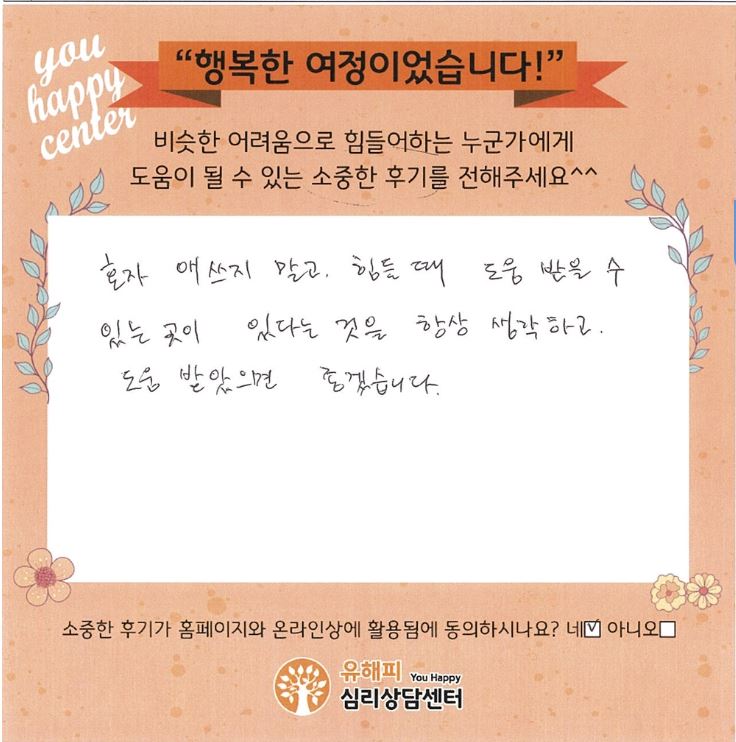 you
happy
center
“행복한 여정이었습니다!”
비슷한 어려움으로 힘들어하는 누군가에게
도움이 될 수 있는 소중한 후기를 전해주세요^^
혼자 애쓰지 말고, 힘들 때 도움 받을 수
있는 곳이 있다는 것을 항상 생각하고.
도움 받았으면 좋겠습니다.
소중한 후기가 홈페이지와 온라인상에 활용됨에 동의하시나요? 네☑ 아니오☐
유해피 You Happy
심리상담센터